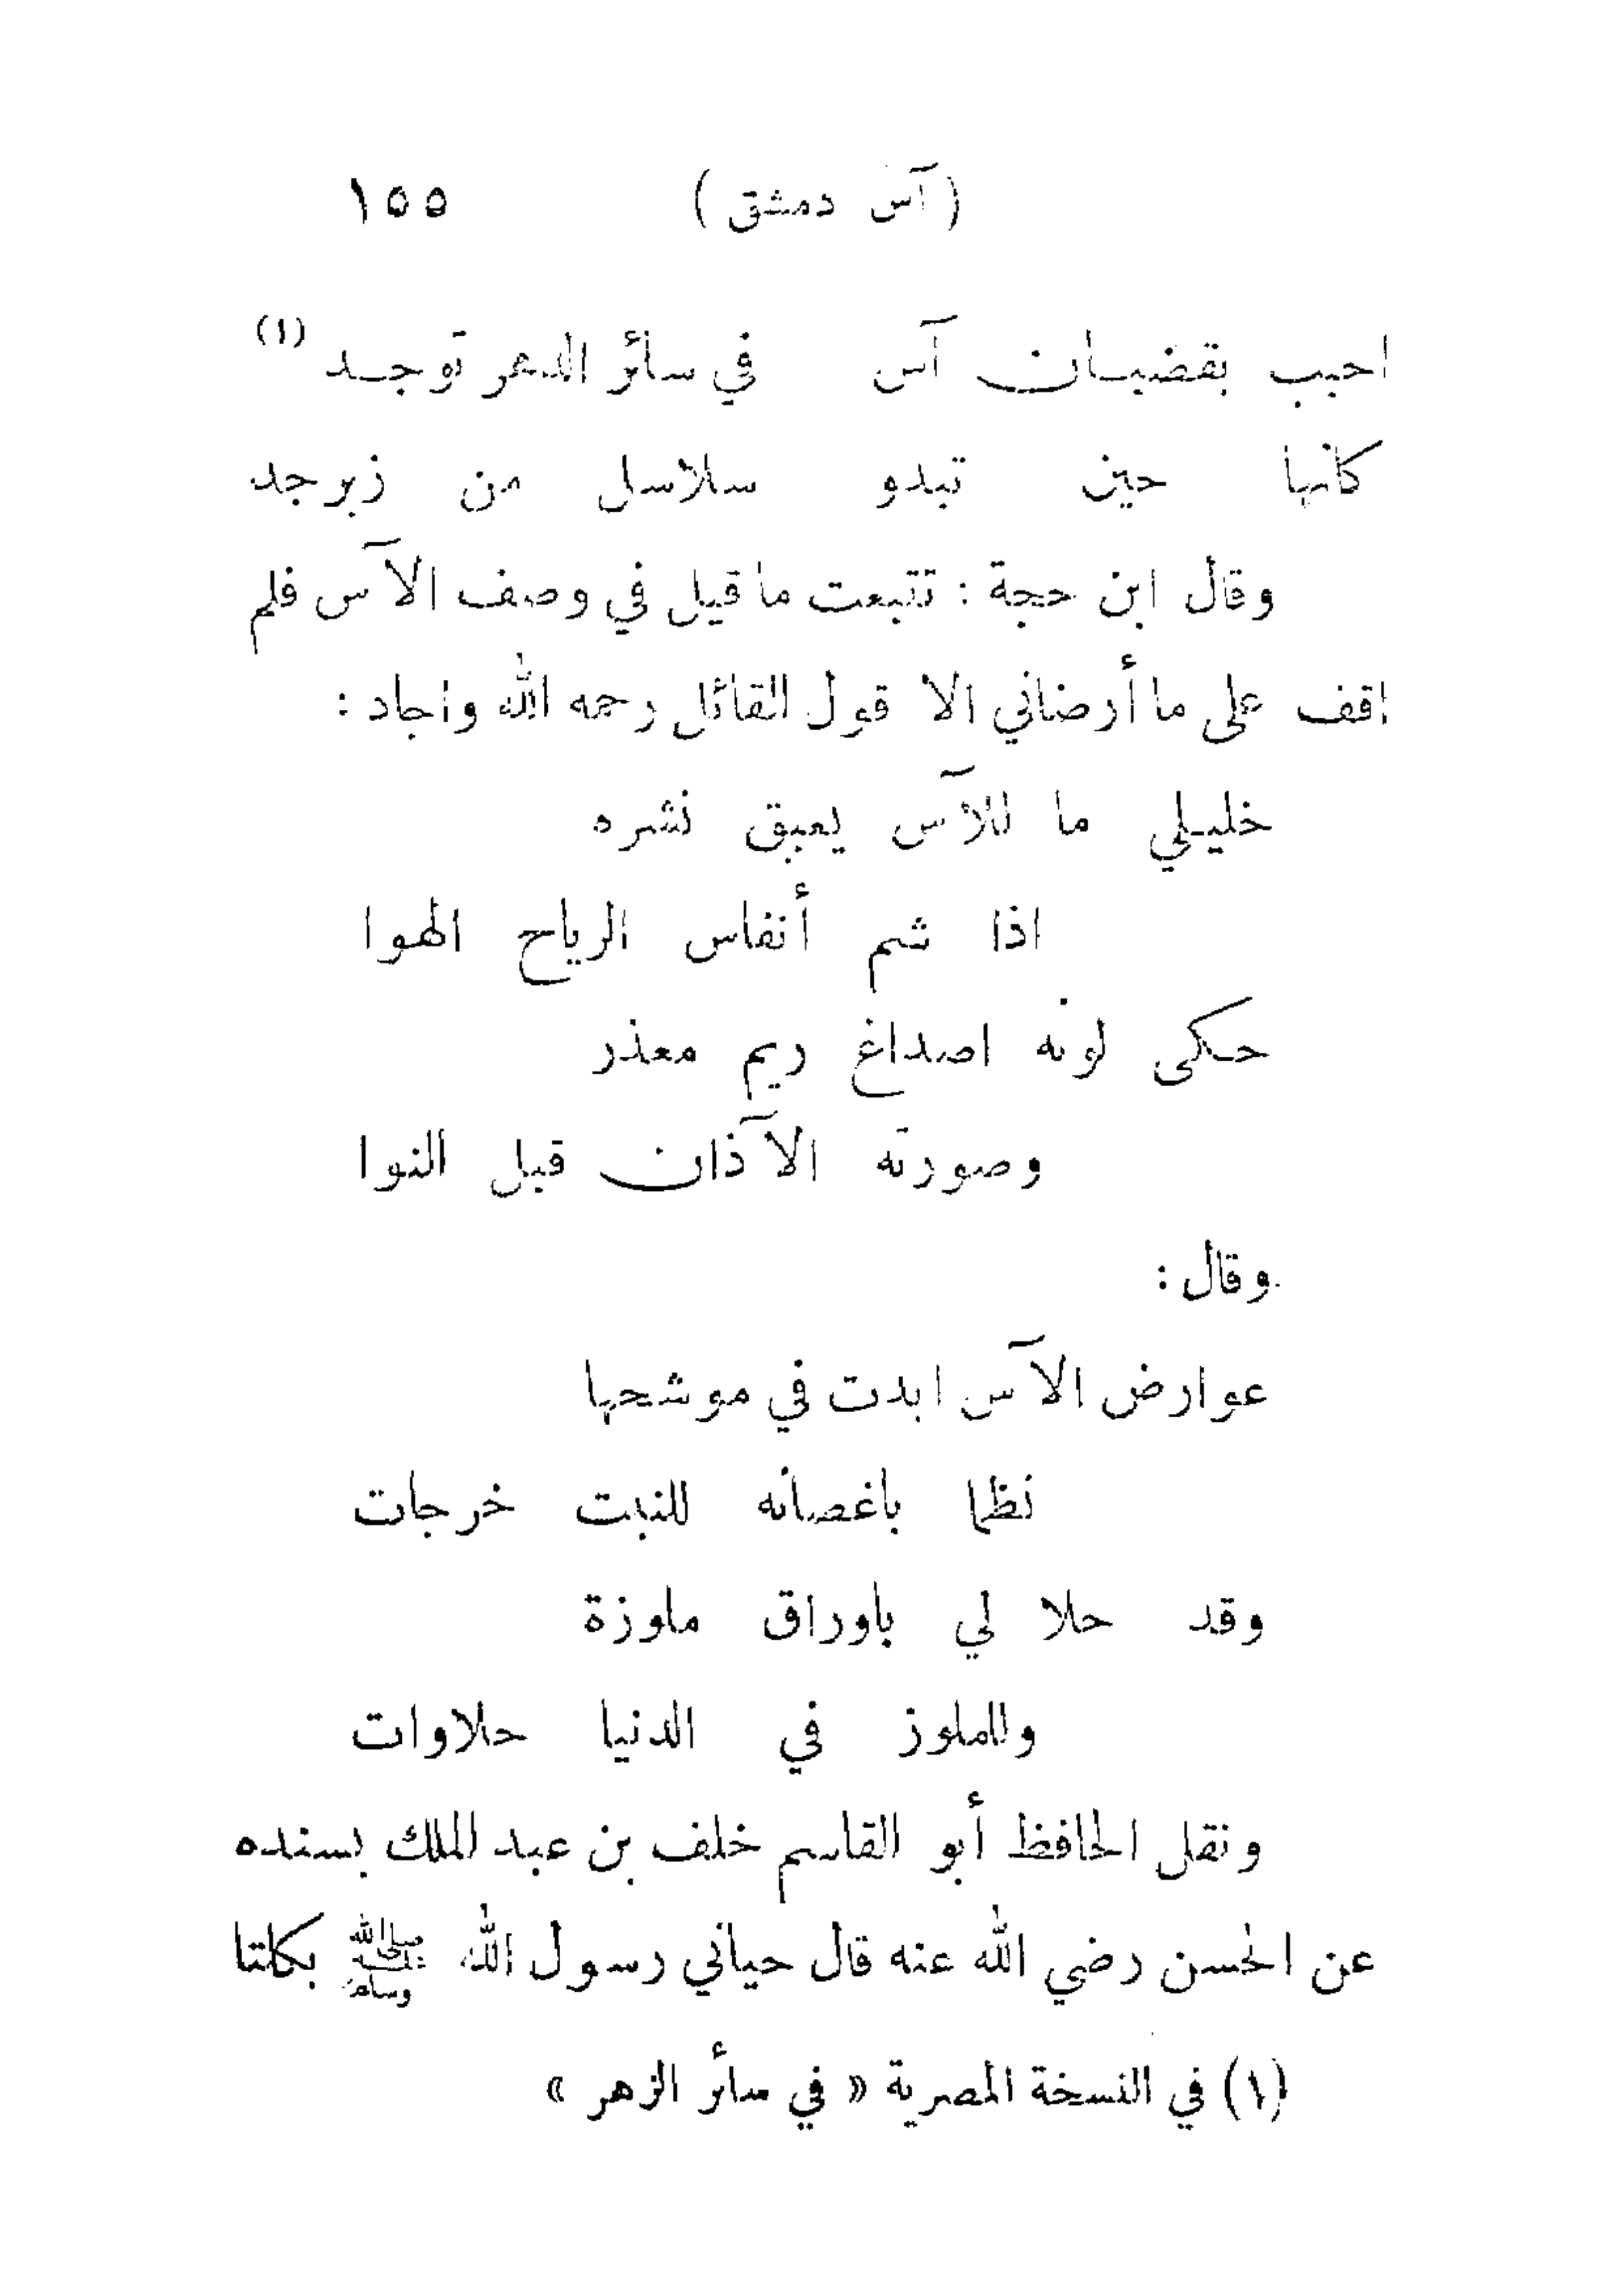 (آس دمشق) ١٥٥
احبب بقضبان آس في سائر الدهر توجد (١)
كأنها حين تبدو سلاسل من زبرجد
وقال ابن حجة : تتبعت ما قيل في وصف الآس فلم
اقف على ما أرضاني الا قول القائل رحمه الله واجاد :
خليلي ما للآس يعبق نشره
اذا شم أنفاس الرياح الهوا
حكى لونه اصداغ ريم معذر
وصورته الآذان قبل النوا
وقال :
عوارض الآس ابدت في موشحها
نظما باغصانه للنبت خرجات
وقد حلا لي باوراق ملوزة
وللملوز في الدنيا حلاوات
ونقل الحافظ أبو القاسم خلف بن عبد الملك بسنده
عن الحسن رضي الله عنه قال حياني رسول الله ﷺ بكلتا
(١) في النسخة المصرية « في سائر الزهر »